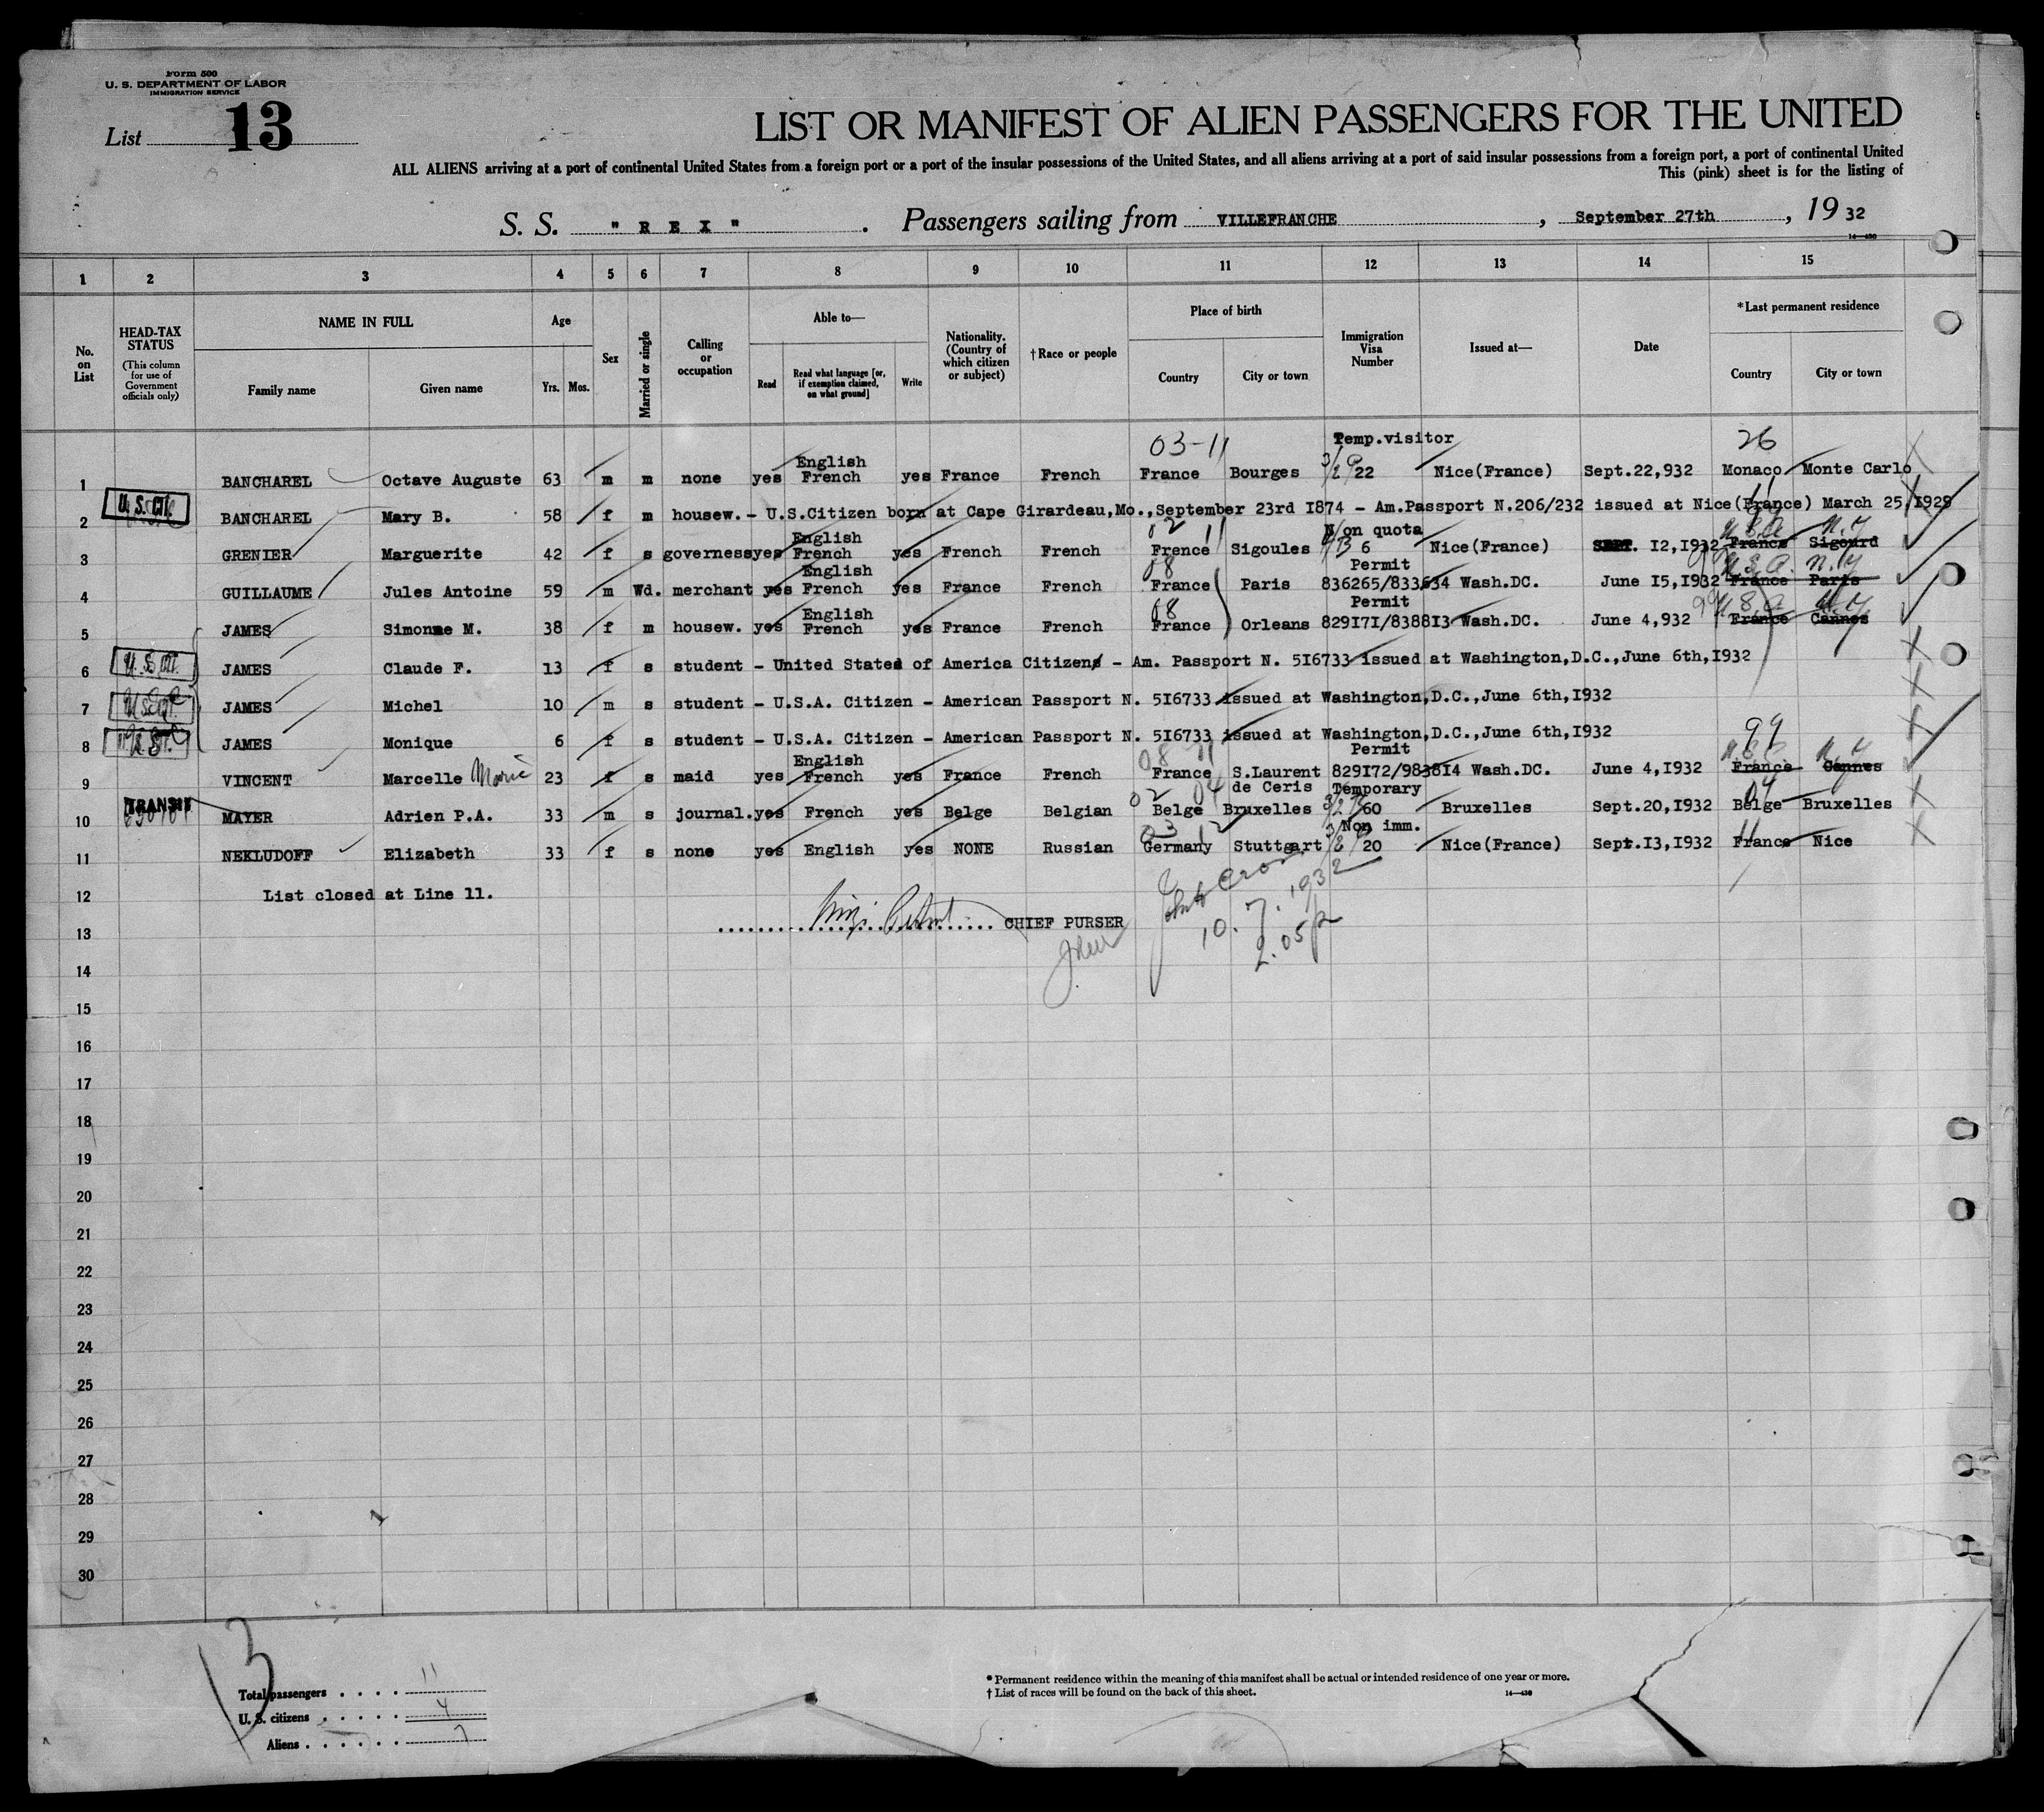 Form 500
U. S. DEPARTMENT OF LABOR
IMMIGRATION SERVICE
List 13
LIST OR MANIFEST OF ALIEN PASSENGERS FOR THE UNITED
ALL ALIENS arriving at a port of continental United States from a foreign port or a port of the insular possessions of the United States, and all aliens arriving at a port of said insular possessions from a foreign port, a port of continental United
This (pink) sheet is for the listing of
S. S. " R E X " . Passengers sailing from VILLEFRANCHE , September 27th , 19 32
14—430
1 2 3 4 5 6 7 8 9 10 11 12 13 14 15
No. on List
HEAD-TAX STATUS
(This column for use of Government officials only)
NAME IN FULL
Family name Given name
Age
Yrs. Mos.
Sex
Married or single
Calling or occupation
Able to—
Read Read what language [or, if exemption claimed, on what ground] Write
Nationality. (Country of which citizen or subject)
†Race or people
Place of birth
Country City or town
Immigration Visa Number
Issued at—
Date
*Last permanent residence
Country City or town
03-11 Temp.visitor 26
English
1 BANCHAREL Octave Auguste 63 m m none yes French yes France French France Bourges 22 Nice(France) Sept.22,932 Monaco Monte Carlo
U.S.CIT.
2 BANCHAREL Mary B. 58 f m housew. - U.S.Citizen born at Cape Girardeau,Mo.,September 23rd I874 - Am.Passport N.206/232 issued at Nice(France) March 25,I929
English 02 11 Non quota U.S.A. N.Y.
3 GRENIER Marguerite 42 f s governess yes French yes French French France Sigoules 6 Nice(France) SEPT. I2,I932 France Sigourd
English 08 Permit U.S.A. N.Y.
4 GUILLAUME Jules Antoine 59 m Wd. merchant yes French yes France French France Paris 836265/833634 Wash.DC. June I5,I932 France Paris
English 08 Permit 99 U.S.A. N.Y.
5 JAMES Simonne M. 38 f m housew. yes French yes France French France Orleans 829I7I/8388I3 Wash.DC. June 4,932 France Cannes
6 JAMES Claude F. 13 f s student - United States of America Citizens - Am. Passport N. 5I6733 issued at Washington,D.C.,June 6th,I932
7 JAMES Michel 10 m s student - U.S.A. Citizen - American Passport N. 5I6733 issued at Washington,D.C.,June 6th,I932
8 JAMES Monique 6 f s student - U.S.A. Citizen - American Passport N. 5I6733 issued at Washington,D.C.,June 6th,I932
English 08 11 Permit 99 N.Y.
9 VINCENT Marcelle Marie 23 f s maid yes French yes France French France S.Laurent de Ceris 829I72/9838I4 Wash.DC. June 4,I932 France Cannes
TRANSIT 02 04 Temporary 04
10 MAYER Adrien P.A. 33 m s journal. yes French yes Belge Belgian Belge Bruxelles 60 Bruxelles Sept.20,I932 Belge Bruxelles
03 12 Non imm. 11
11 NEKLUDOFF Elizabeth 33 f s none yes English yes NONE Russian Germany Stuttgart 20 Nice(France) Sept.I3,I932 France Nice
12 List closed at Line 11.
13 CHIEF PURSER
10.7.1932
2.05p
14
15
16
17
18
19
20
21
22
23
24
25
26
27
28
29
30
13
Total passengers . . . . 11
U. S. citizens . . . . . 4
Aliens . . . . . . 7
* Permanent residence within the meaning of this manifest shall be actual or intended residence of one year or more.
† List of races will be found on the back of this sheet. 14—430